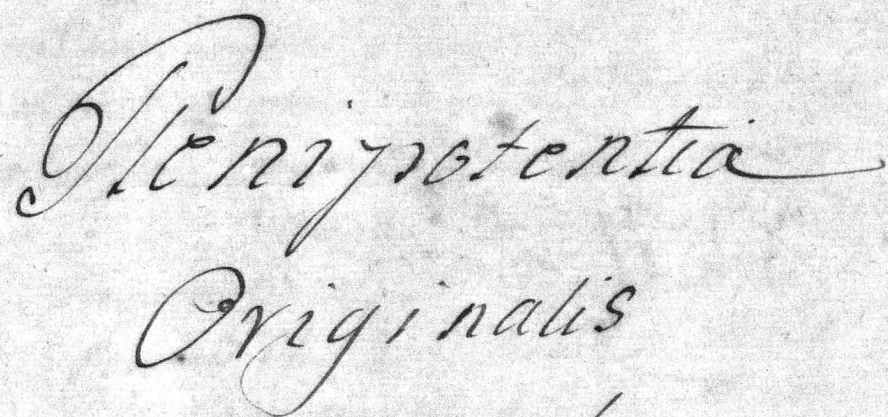 Plenipotentia
Originalis